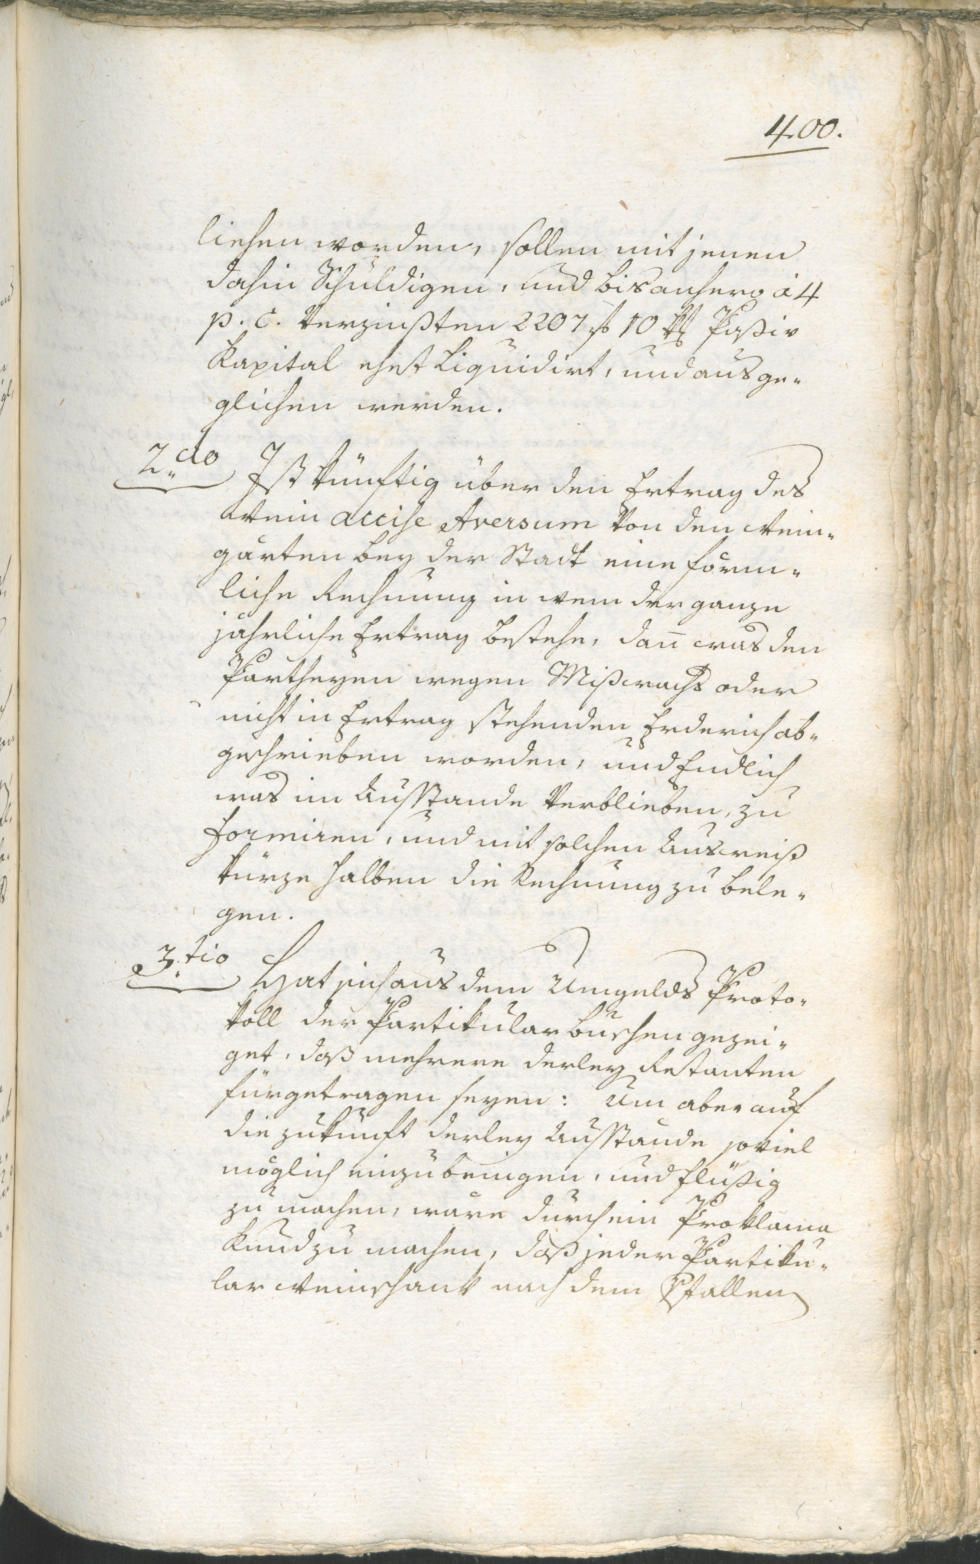 400.
liehen worden, sollen mit jenen
dahin Schuldigen, und bis anhero à 4
p. C. Verzinßten 2207 f 10 x Paßiv
Kapital ehest Liquidirt, und ausge-
glichen werden.
2.do Ist künftig über den Ertrag des
Wein accise Aversum von den Wein-
gärten bey der Stadt eine förm-
liche Rechnung in wem der ganze
jährliche Ertrag bestehe, dañ was den
Partheyen wegen Mißwachs oder
nicht in Ertrag stehenden Erderich ab-
geschrieben worden, und Endlich
was im Ausstande Verblieben, zu
formiren, und mit solchen Ausweiß
kürze halben die Rechnung zu bele-
gen.
3.tio Hat sich aus dem Umgelds Proto-
koll der Partikular buschen gezei-
get, daß mehrere derley Restanten
fürgetragen seyen: Um aber auf
die zukunft derley Ausstände soviel
möglich einzubringen, und flüßig
zu machen, wäre durch ein Proklama
Kund zu machen, daß jeder Partiku-
lar Weinschank nach dem Gefallen